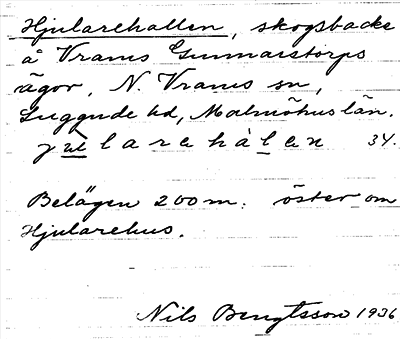 Hjularehallen, skogsbacke
å Vrams Gunnarstorps
ägor, N. Vrams sn,
Luggude hd, Malmöhus län.
jularehàlen 34.
Belägen 200 m. öster om
Hjularehus.
Nils Bengtsson 1936